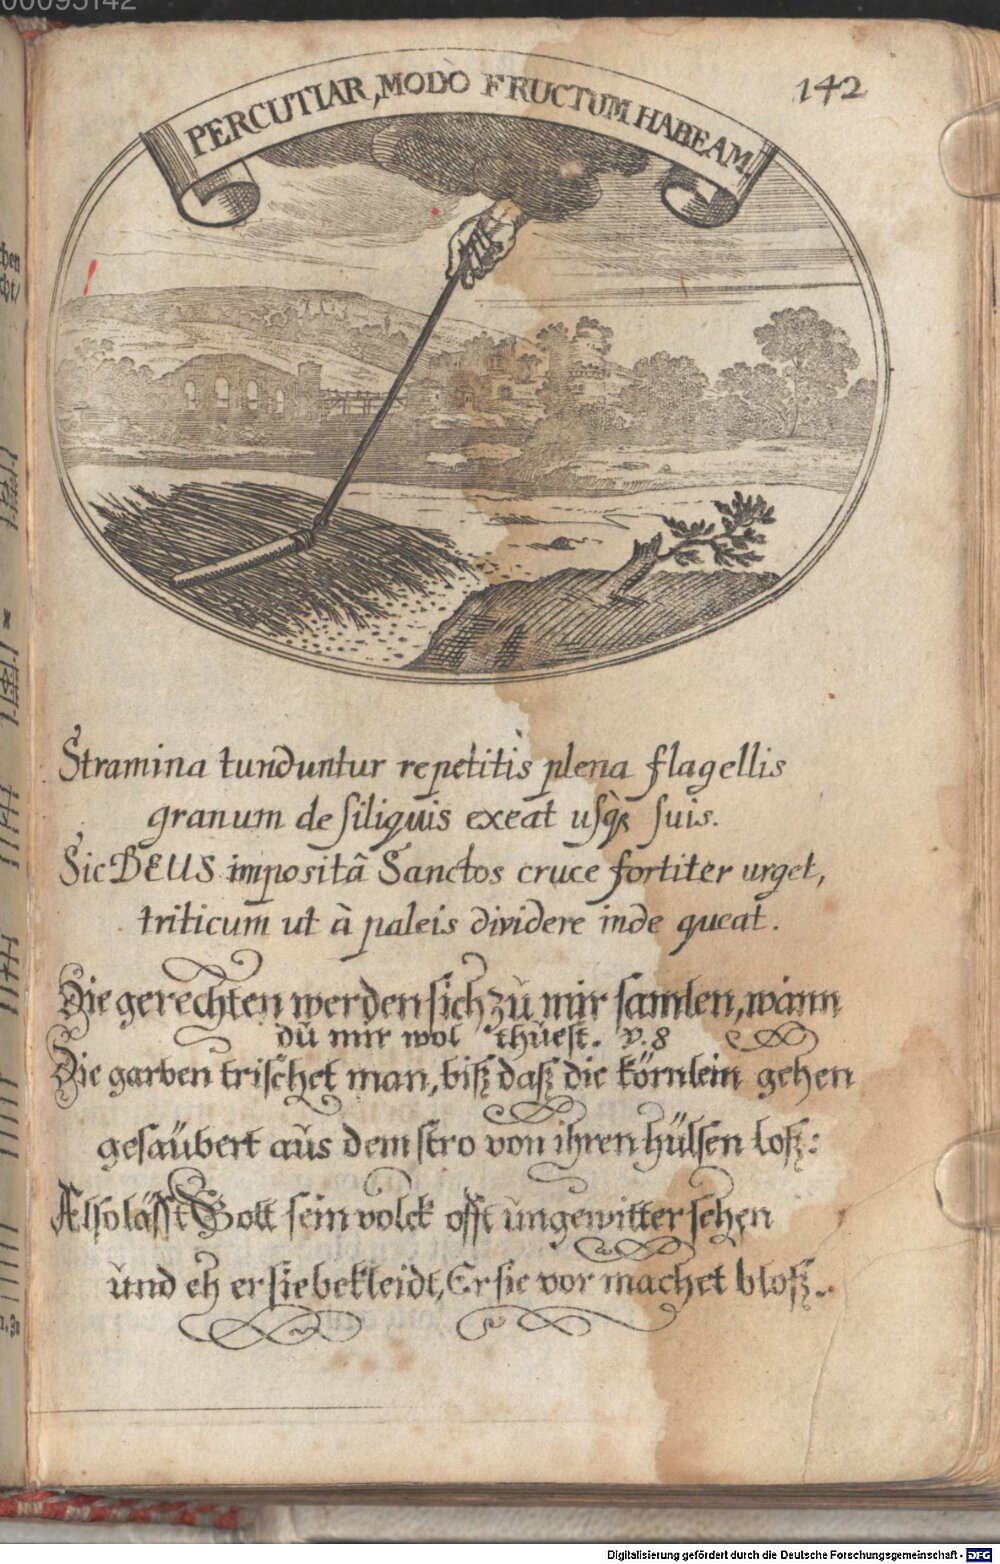 00095142
142
PERCUTIAR, MODO FRUCTUM HABEAM.
Stramina tunduntur repetitis plena flagellis
granum de ſiliquis exeat uſq̀ ſuis.
Sic DEUS impositâ Sanctos cruce fortiter urget,
triticum ut à paleis dividere inde queat.
Die gerechten werden sich zů mir samlen, wann
dů mir wol thůest. v. 8
Die garben trischet man, biß daß die körnlein gehen
gesäubert aůs dem stro von ihren hülsen loß:
Also lässt Gott sein volck offt ůngewitter sehen
ůnd eh er sie bekleidt, Er sie vor machet bloß.
Digitalisierung gefördert durch die Deutsche Forschungsgemeinschaft - DFG